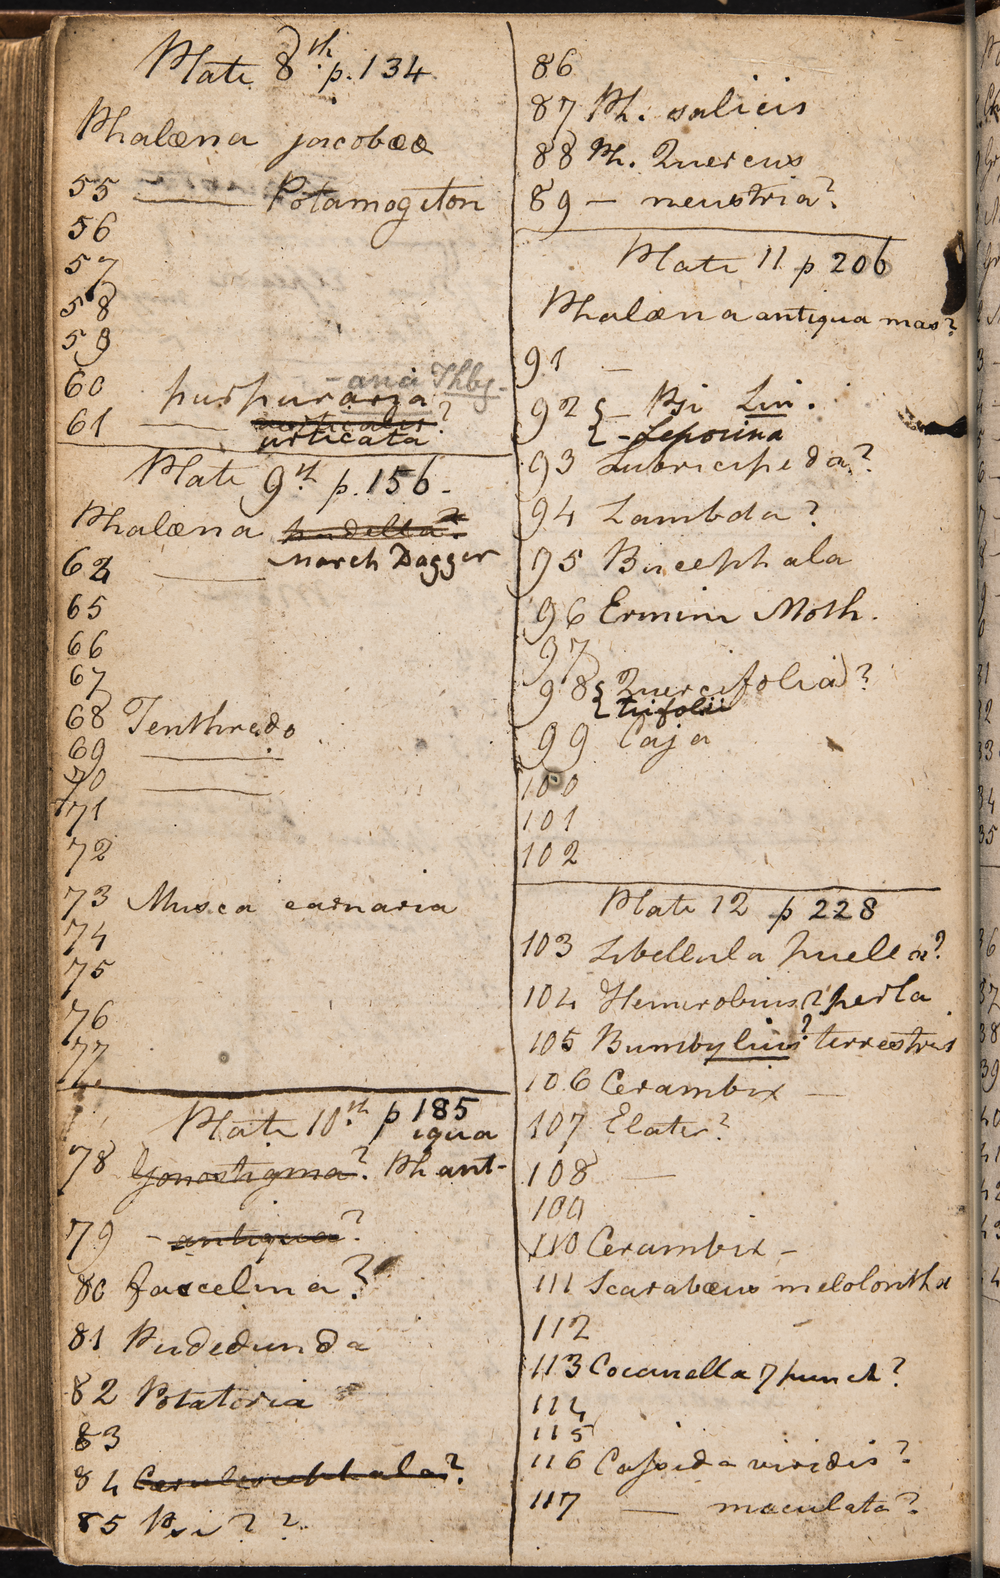 Plate 8th p. 134
Phalæna jacobææ
55 ——— Potamogeton
56
57
58
59
- ana Thbg.
60 purpuraria
61 —— verticalis?
urticata
Plate 9th p. 156.
Phalæna padella?
March Dagger
64 ———
65
66
67
68 Tenthredo
69 ———
70 ———
71
72
73 Musca carnaria
74
75
76
77
Plate 10th p 185
78 Gonostigma? Ph ant-
iqua
79 - antiqua?
80 fascelina?
81 Pudedunda
82 Potatoria
83
84 Cæruleocephala?
85 Psi? ?
86
87 Ph. salicis
88 Ph. Quercus
89 — neustria?
Plate 11 p 206
Phalæna antiqua mas?
91 —
92 { — Psi Lin.
{ - Leporina
93 Lubricipeda?
94 Lambda?
95 Bucephala
96 Ermine Moth.
97
98 { Quercifolia?
{ trifolii
99 Caja
100
101
102
Plate 12 p 228
103 Libellula puella?
104 Hemerobius? perla
105 Bumbylius? terrestris
106 Cerambix —
107 Elater?
108 —
109
110 Cerambix -
111 Scarabæus melolontha
112
113 Cocanella 7 punct?
114
115
116 Cassida viridis?
117 —— maculata?